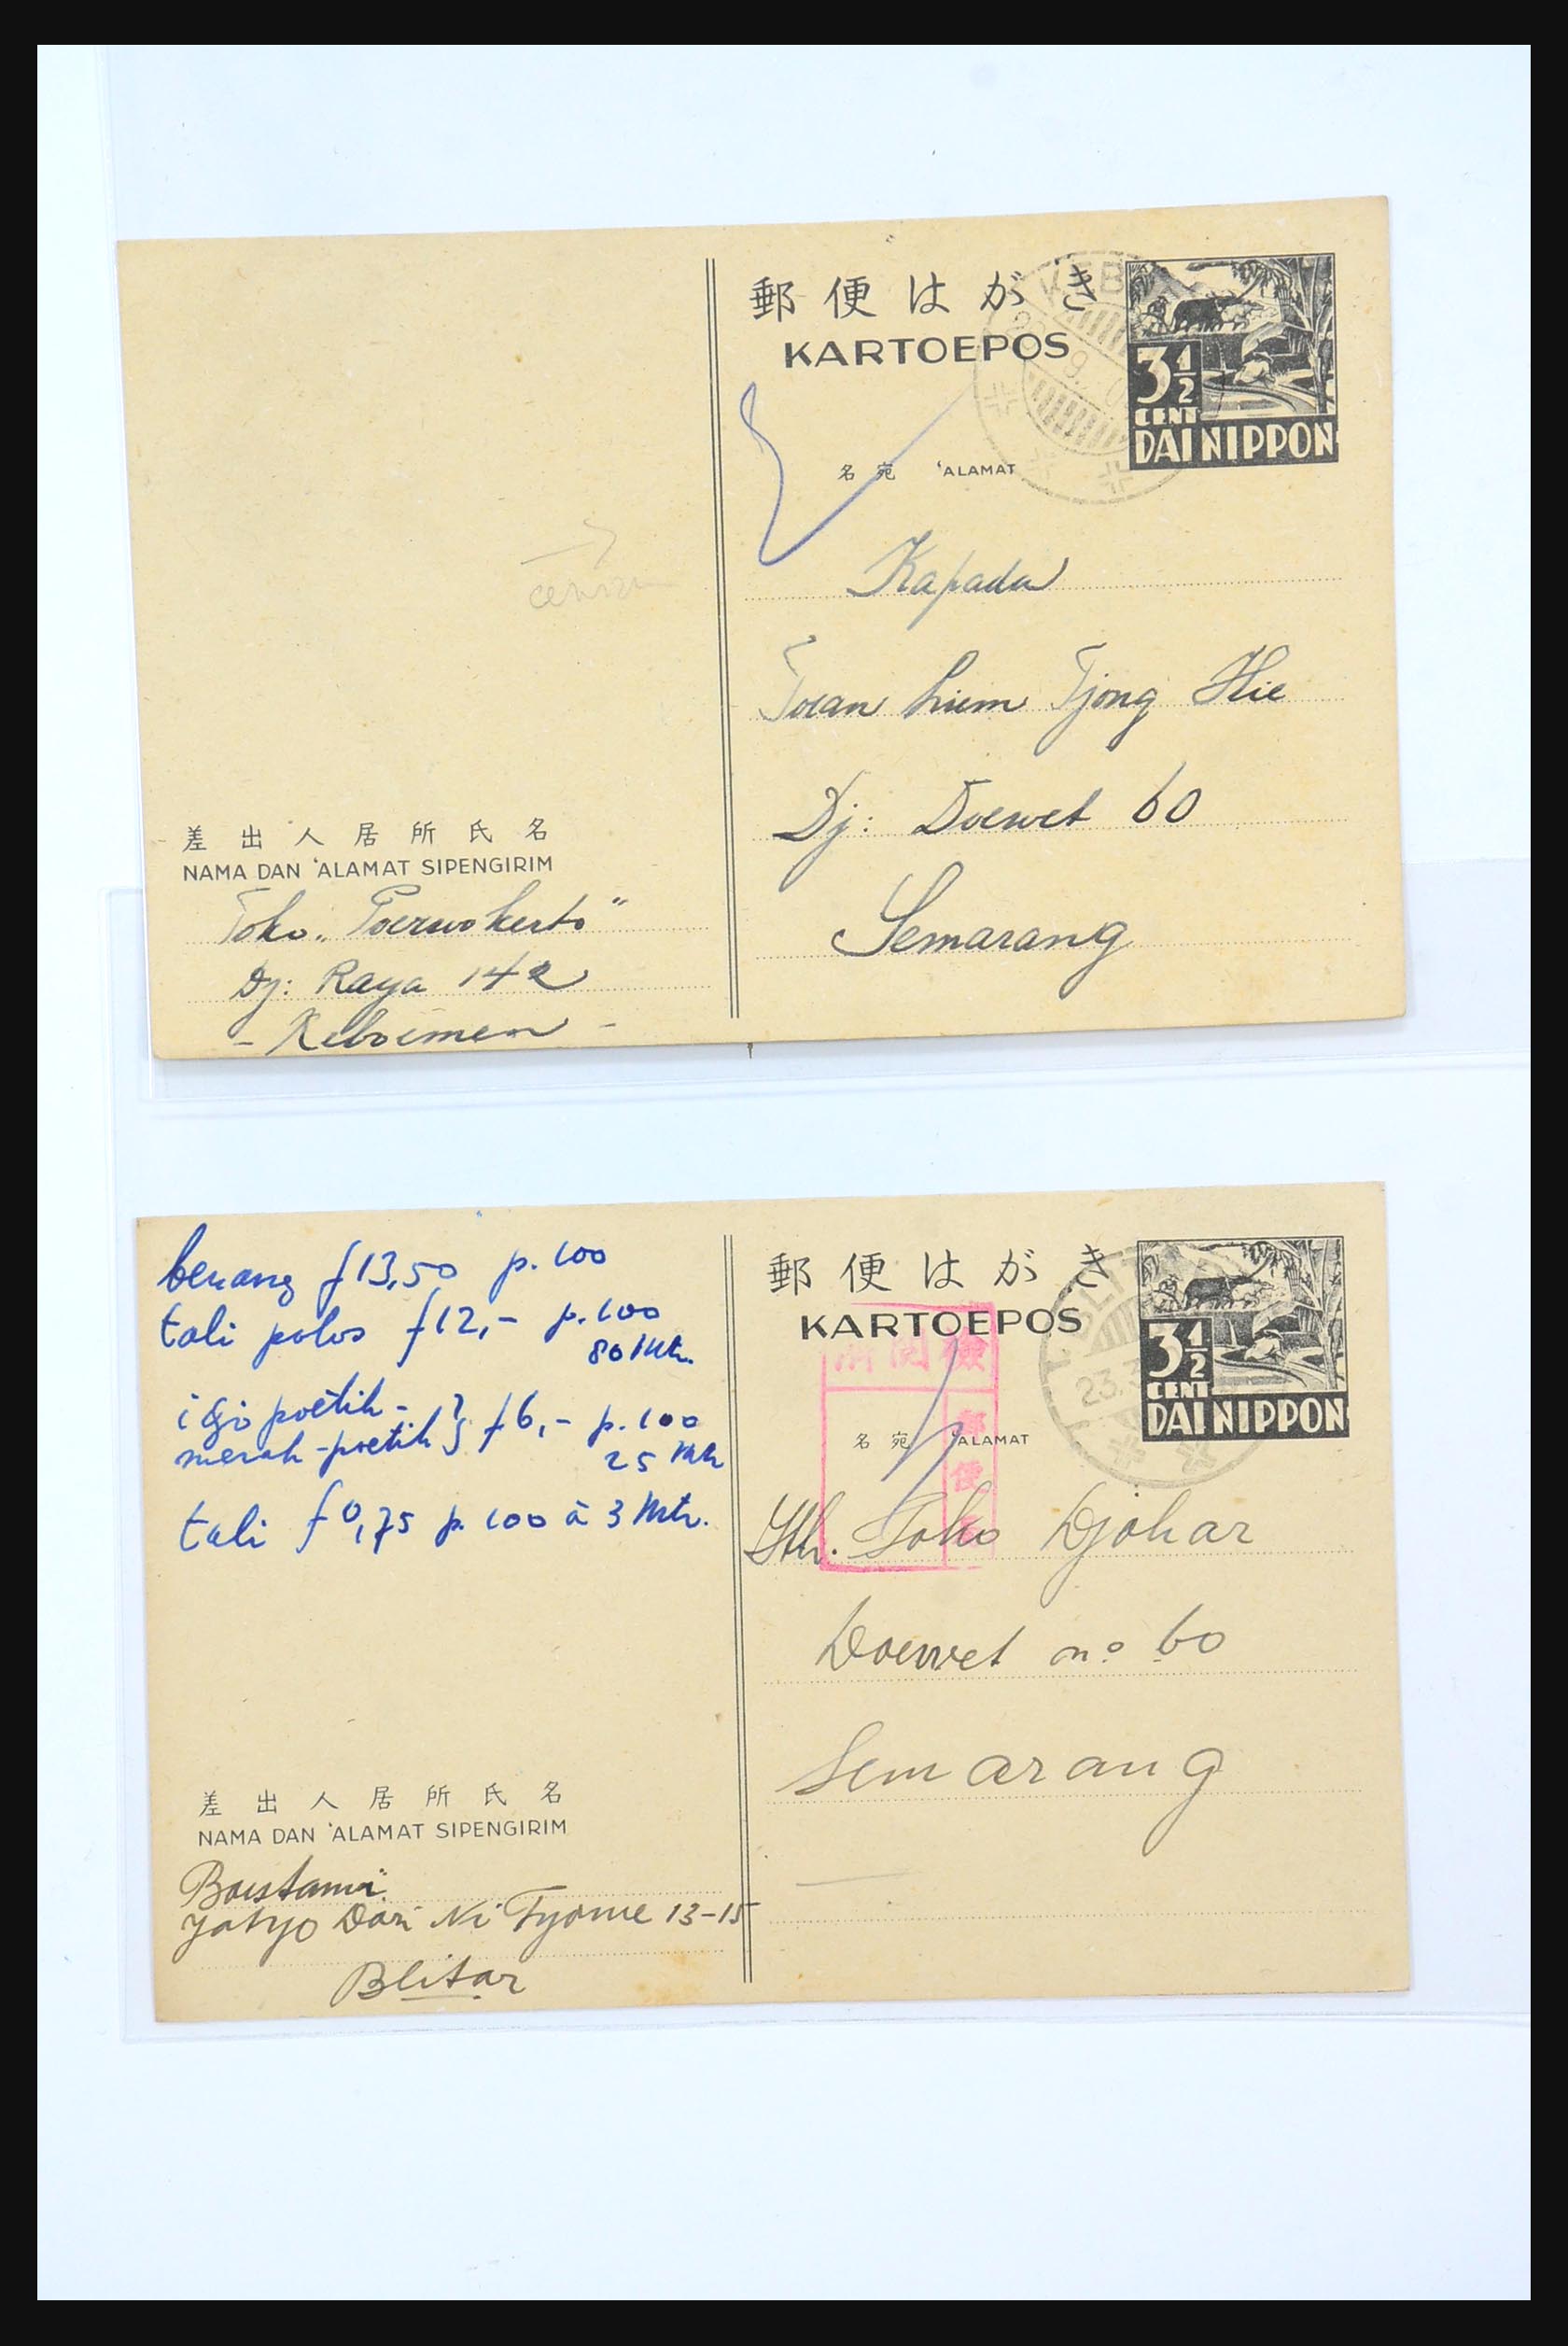 郵便はがき
KARTOEPOS
KEB
3½
CENT
DAI NIPPON
名宛 'ALAMAT
Kapada
Toean Liem Tjong Hie
Dj: Doewet 60
Semarang
差出人居所氏名
NAMA DAN 'ALAMAT SIPENGIRIM
Toko „Poerwokerto"
Dj: Raya 142
- Keboemen -
benang f 13,50 p. 100
tali polos f 12,- p. 100
80 Mtr.
idjo poetih -
merah-poetih } f 6,- p. 100
25 Mtr
tali f 0,75 p. 100 à 3 Mtr.
郵便はがき
KARTOEPOS
BLIT
23.3
3½
CENT
DAI NIPPON
検閲済
郵便
名宛 'ALAMAT
Jth. Toko Djohar
Doewet no 60
Semarang
差出人居所氏名
NAMA DAN 'ALAMAT SIPENGIRIM
Boestami
Yatyo Dori Ni Tyome 13-15
Blitar